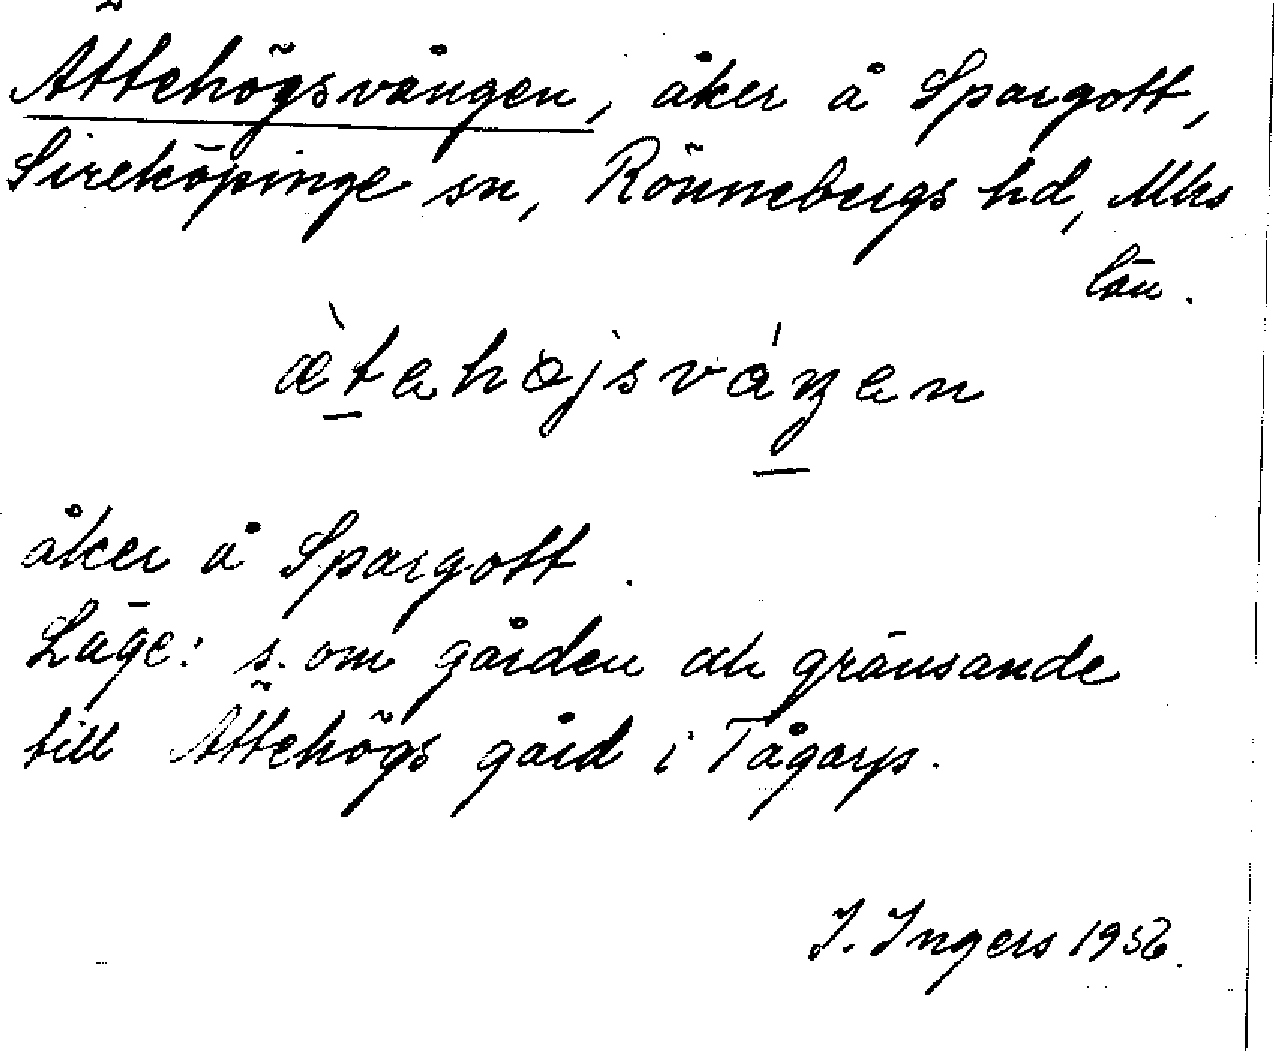 Ättehögsvången, åker å Spargott,
Sireköpinge sn, Rönnebergs hd, Mhs
län.
ætahøjsváŋen
åker å Spargott.
Läge: s. om gården och gränsande
till Ättehögs gård i Tågarp.
I. Ingers 1956.